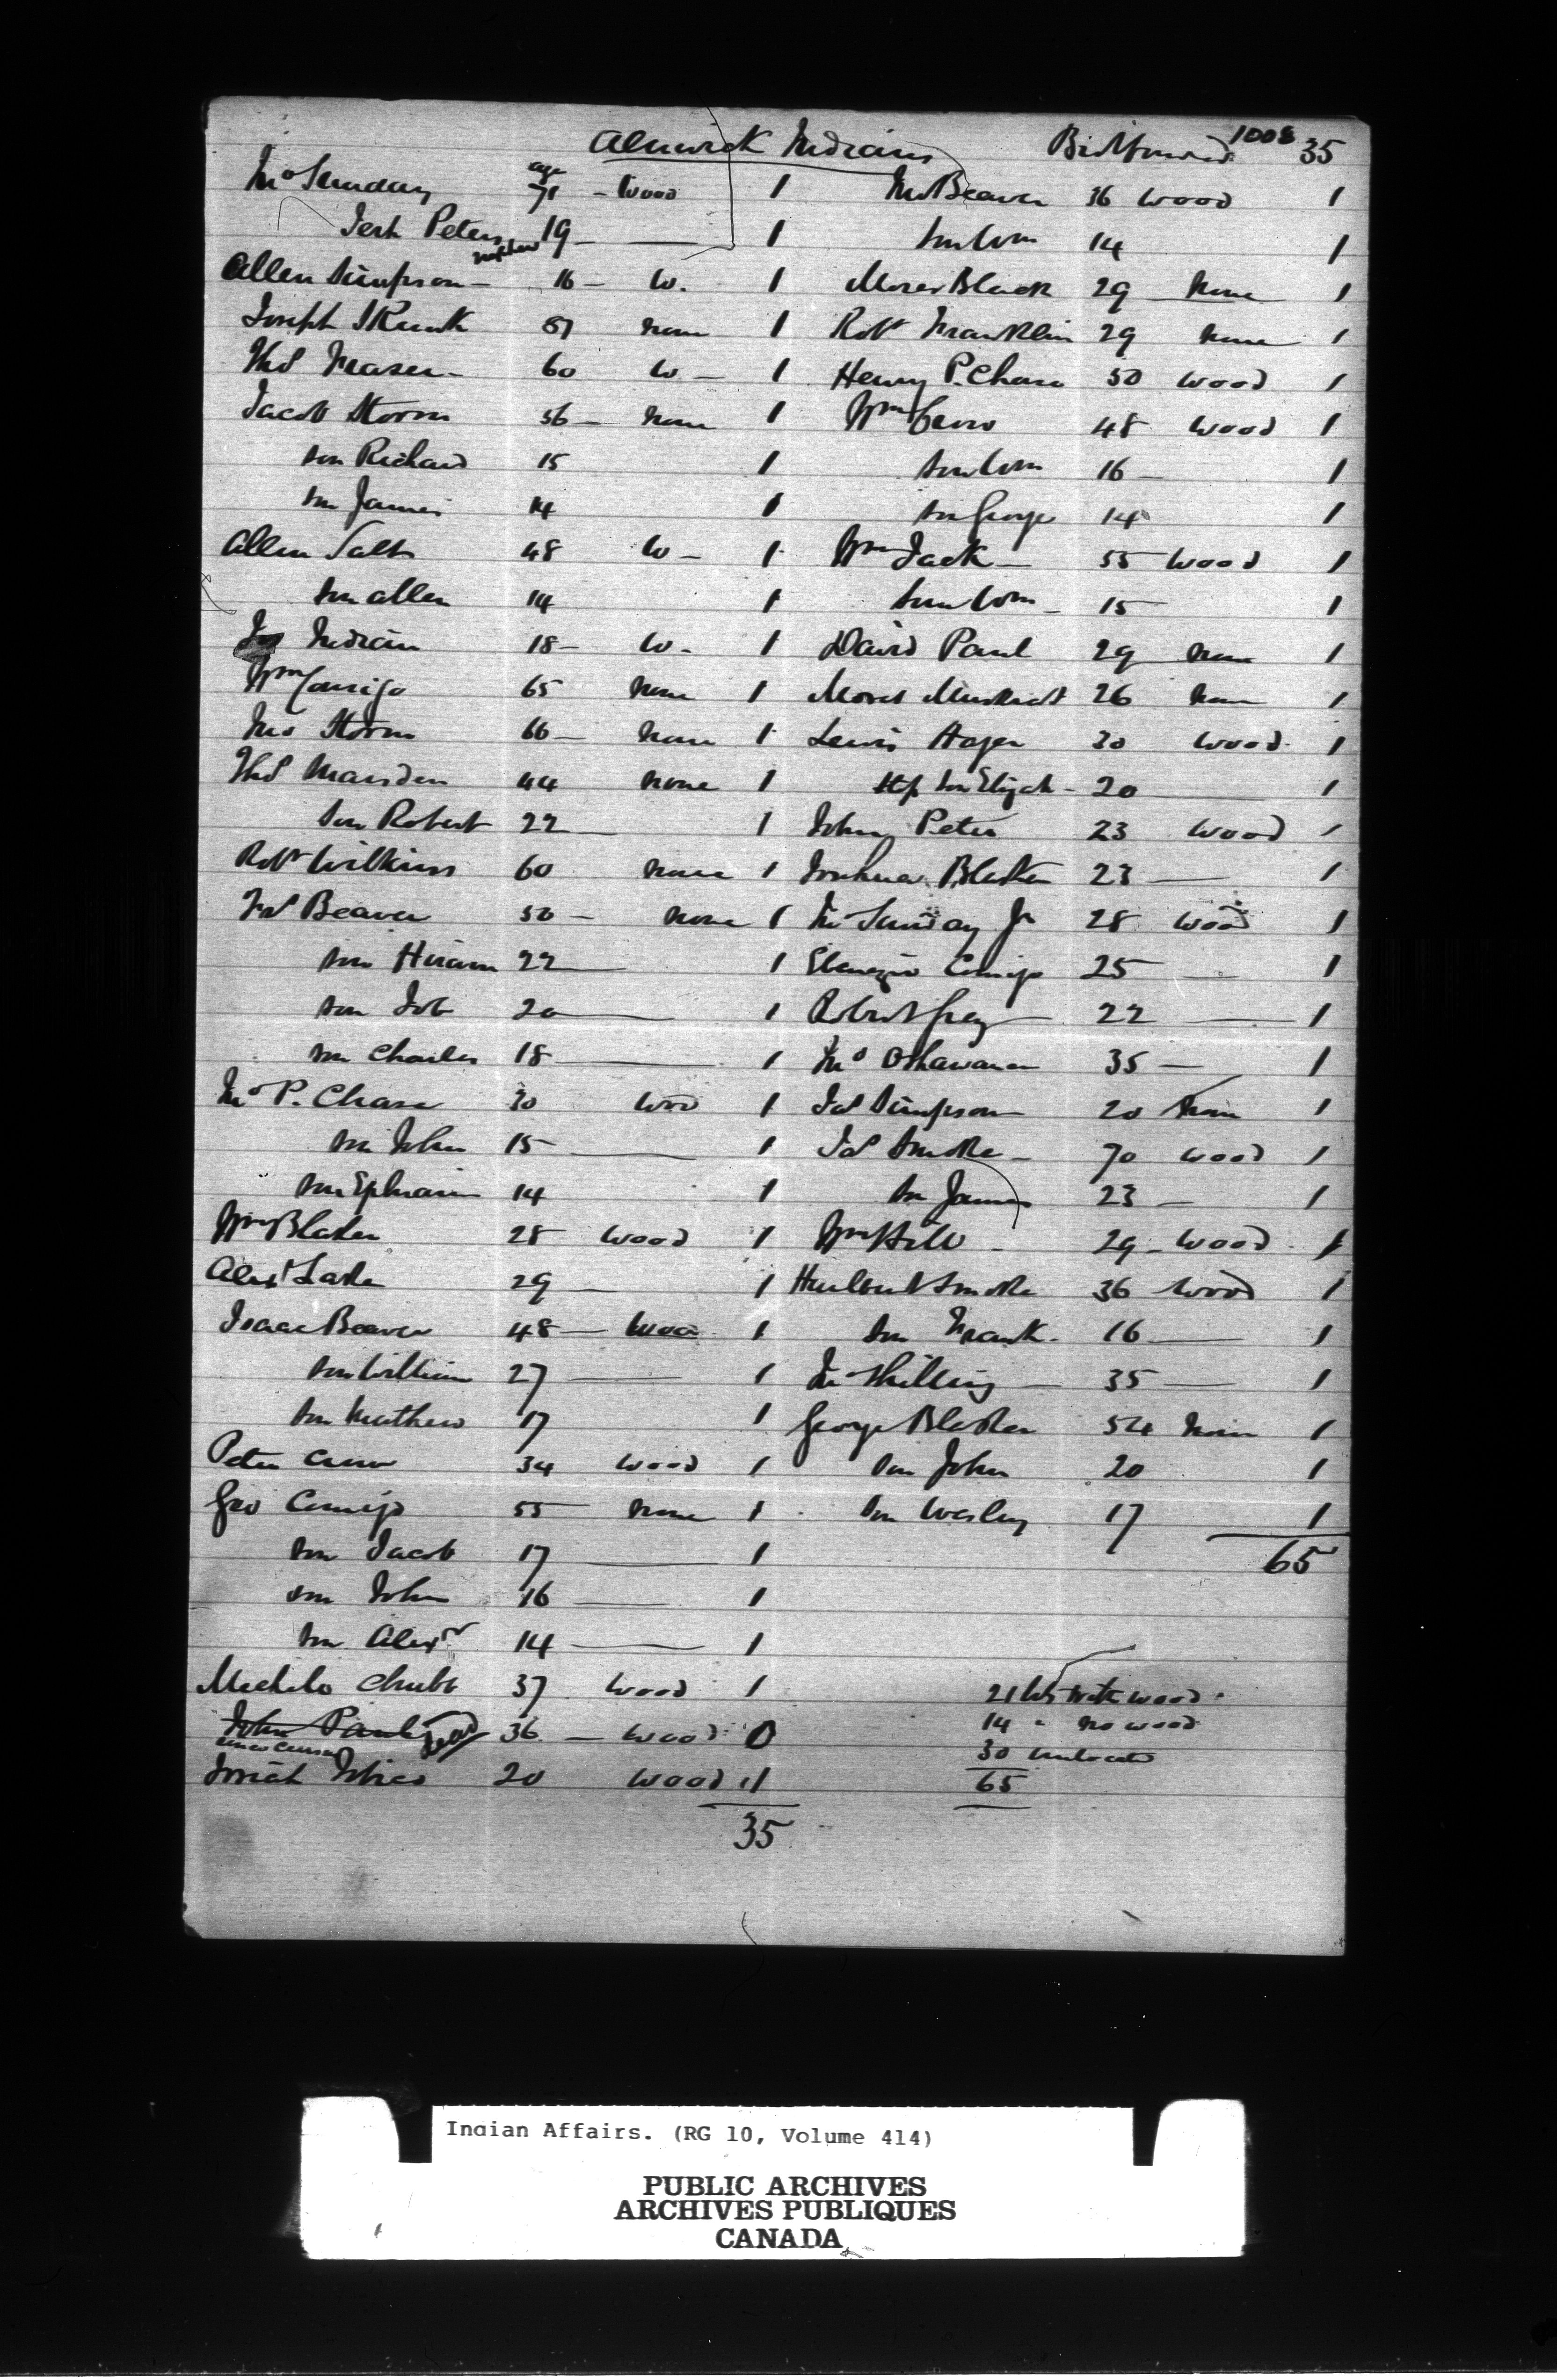 Alnwick Indians
1008
Bt Forward 35
age
Jno Sunday 71 - Wood 1
Jno Beaver 36 Wood 1
Peters nephew 19 - 1
son Wm 14 1
Allen Simpson - 16 - W. 1
Moses Black 29 none 1
Joseph Skunk 87 none 1
Robt Franklin 29 none 1
Thos Fraser - 60 W - 1
Henry P. Chase 50 Wood 1
Jacob Storm 56 - none 1
Wm Crow 48 Wood 1
son Richard 15 1
son Wm 16 - 1
son James 14 1
son George 14 1
Allen Salt 48 W - 1
Wm Jack - 55 Wood 1
son Allen 14 1
son Wm - 15 1
Indian 18 - W - 1
David Paul 29 none 1
Wm Comigo 65 none 1
Moses Muskrat 26 none 1
Jno Storm 66 - none 1
Lewis Hager 30 Wood 1
Thos Marsden 44 none 1
Step son Elijah - 20 1
son Robert 22 1
Johny Peter 23 Wood 1
Robt Wilkins 60 none 1
Joshua Blaker 23 1
Jas Beaver 50 - none 1
Jno Sunday Jr 28 Wood 1
son Hiram 22 1
Ebenezer Comigo 25 1
son Job 20 1
Robert Gray 22 1
son Charles 18 1
Jno Oshawanoo 35 - 1
Jno P. Chase 30 Wood 1
Jas Simpson 20 none 1
son John 15 - 1
Jas Smoke - 70 Wood 1
son Ephraim 14 1
son James 23 - 1
Wm Blaker 28 Wood 1
Wm Hill - 29 - Wood 1
Alexr Lake 29 1
Hurlburt Smoke 36 Wood 1
Isaac Beaver 48 - Wood 1
son Frank - 16 1
son William 27 1
Jno Shilling 35 1
son Mathew 17 1
George Blaker 54 none 1
Peter Crow 34 Wood 1
son John 20 1
Geo Comigo 55 none 1
son Wesley 17 1
son Jacob 17 1
65
son John 16 1
son Alexr 14 1
Wood 1
Chubb 37
21 with wood
John Paul dead 36 - Wood 0
14 " no wood
since census
30
Josiah 20 Wood 1
65
35
Indian Affairs. (RG 10, Volume 414)
PUBLIC ARCHIVES
ARCHIVES PUBLIQUES
CANADA